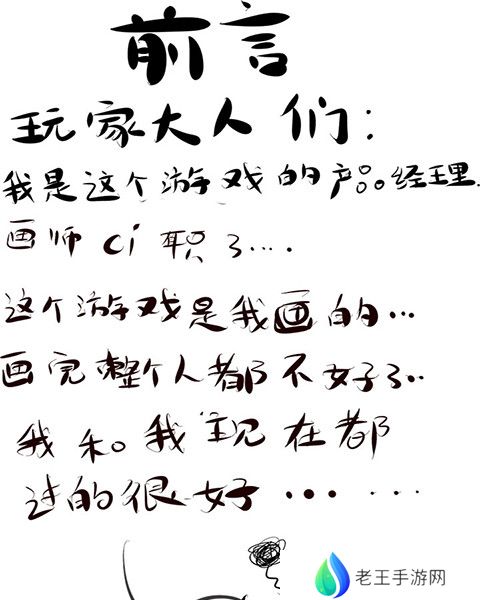 前言
玩家大人们:
我是这个游戏的产品经理.
画师ci职了...
这个游戏是我画的...
画完整个人都不好了..
我和我 现在都
过的很好......
老王手游网